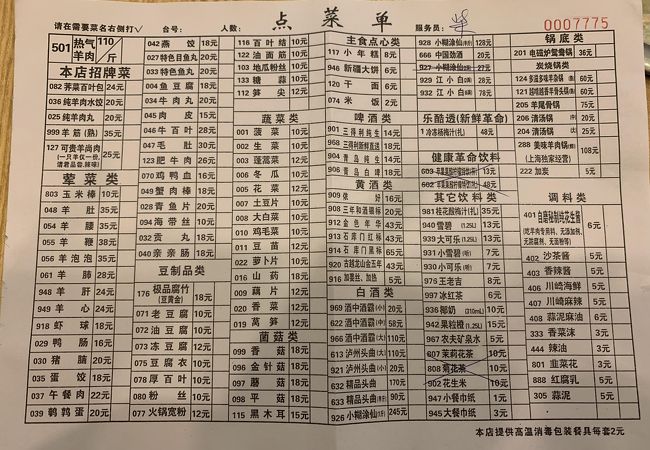 请在需要菜名右侧打√ 台号: 人数: 点菜单 服务员: 0007775
501 热气羊肉 110/斤
本店招牌菜
082 荠菜百叶包 24元
036 纯羊肉水饺 20元
025 纯羊肉丸 20元
999 羊筋(熟) 35元
127 可贵羊尚肉 25元
(一只羊仅一份,请君品尝,辣味)
荤菜类
803 玉米棒 10元
048 羊肚 35元
054 羊腰 35元
055 羊鞭 38元
056 羊泡泡 35元
061 羊肺 28元
948 羊肝 24元
949 羊心 24元
918 虾球 18元
029 鸭肠 16元
030 猪脑 20元
035 蛋饺 18元
037 午餐肉 22元
039 鹌鹑蛋 20元
042 燕饺 18元
027 特色目鱼丸 20元
033 特色鱼丸 20元
004 鱼豆腐 18元
034 牛肉丸 20元
045 肉皮 15元
046 牛百叶 28元
047 毛肚 30元
123 肥牛肉 26元
070 鸡鸭血 16元
049 蟹肉棒 18元
028 青鱼片 20元
094 海带丝 10元
032 贡丸 18元
040 亲亲肠 18元
豆制品类
176 极品腐竹(豆黄金) 18元
071 老豆腐 10元
072 油豆腐 10元
073 冻豆腐 12元
075 豆腐衣 10元
078 厚百叶 10元
080 粉丝 10元
077 火锅宽粉 12元
116 百叶结 10元
122 油面筋 10元
103 地瓜粉丝 10元
133 糖蒜 10元
112 笋尖 12元
蔬菜类
001 菠菜 10元
002 生菜 10元
003 蓬蒿菜 12元
006 冬瓜 10元
005 花菜 12元
007 土豆片 10元
008 大白菜 10元
010 鸡毛菜 10元
011 豆苗 12元
022 萝卜片 10元
016 山药 18元
009 藕片 12元
020 香菜 12元
019 莴笋 12元
菌菇类
099 香菇 18元
096 金针菇 18元
097 蘑菇 18元
098 平菇 18元
115 黑木耳 15元
主食点心类
117 小年糕 8元
946 新疆大饼 6元
120 干面 6元
074 米饭 2元
啤酒类
901 三得利纯生 14元
968 三得利新鲜直送 18元
904 青岛纯生 18元
906 青岛白啤 18元
黄酒类
909 侬好 16元
908 三年和酒银标
912 金色年华 43元
913 石库门红标 43元
914 石库门黑标 65元
920 古越龙山金五年 43元
916 加姜丝、加热 5元
白酒类
969 酒中酒霸(小) 20元
622 酒中酒霸(中) 58元
966 酒中酒霸(大)
613 泸州头曲(大) 110元
921 泸州头曲(小) 20元
632 精品头曲 170元
633 精品头曲 90元
926 小糊涂仙 245元
928 小糊涂仙 128元
666 中国劲酒 20元
927 小糊涂仙 27元
929 江小白 28元
932 江小白 78元
乐酷透(新鲜革命)
1 冷冻杨梅汁(扎) 48元
健康革命饮料
603 13元
602 48元
其它饮料类
981 桂花酸梅汁(扎) 35元
940 雪碧 (1.25) 13元
939 大可乐 (1.25) 13元
931 小雪碧 7元
930 小可乐 7元
976 王老吉 8元
997 冰红茶 6元
936 椰奶 (310mL) 10元
942 果粒橙 (1.25L) 15元
967 农夫矿泉水 5元
607 茉莉花茶 10元
808 菊花茶 10元
902 花生米 10元
947 小餐巾纸 1元
945 大餐巾纸 3元
锅底类
201 电磁炉鸳鸯锅 36元
炭烧锅类
124 多滋多味羊杂锅 60元
121 超鲜超香羊骨头锅 60元
205 羊尾骨锅 75元
206 清汤锅 20元
204 清汤锅 25元
288 美味羊肉锅 108元
(上海独家经营)
222 加炭 5元
调料类
401 自磨秘制纯花生酱 6元
(吃羊肉专用料、无添加剂、无防腐剂、无面粉等)
402 沙茶酱 5元
403 香辣酱 5元
406 川崎海鲜 5元
407 川崎麻辣 5元
408 蒜泥麻油 6元
333 香菜沫 3元
444 辣油 3元
801 韭菜花 3元
888 红腐乳 5元
305 蒜泥 5元
本店提供高温消毒包装餐具每套2元